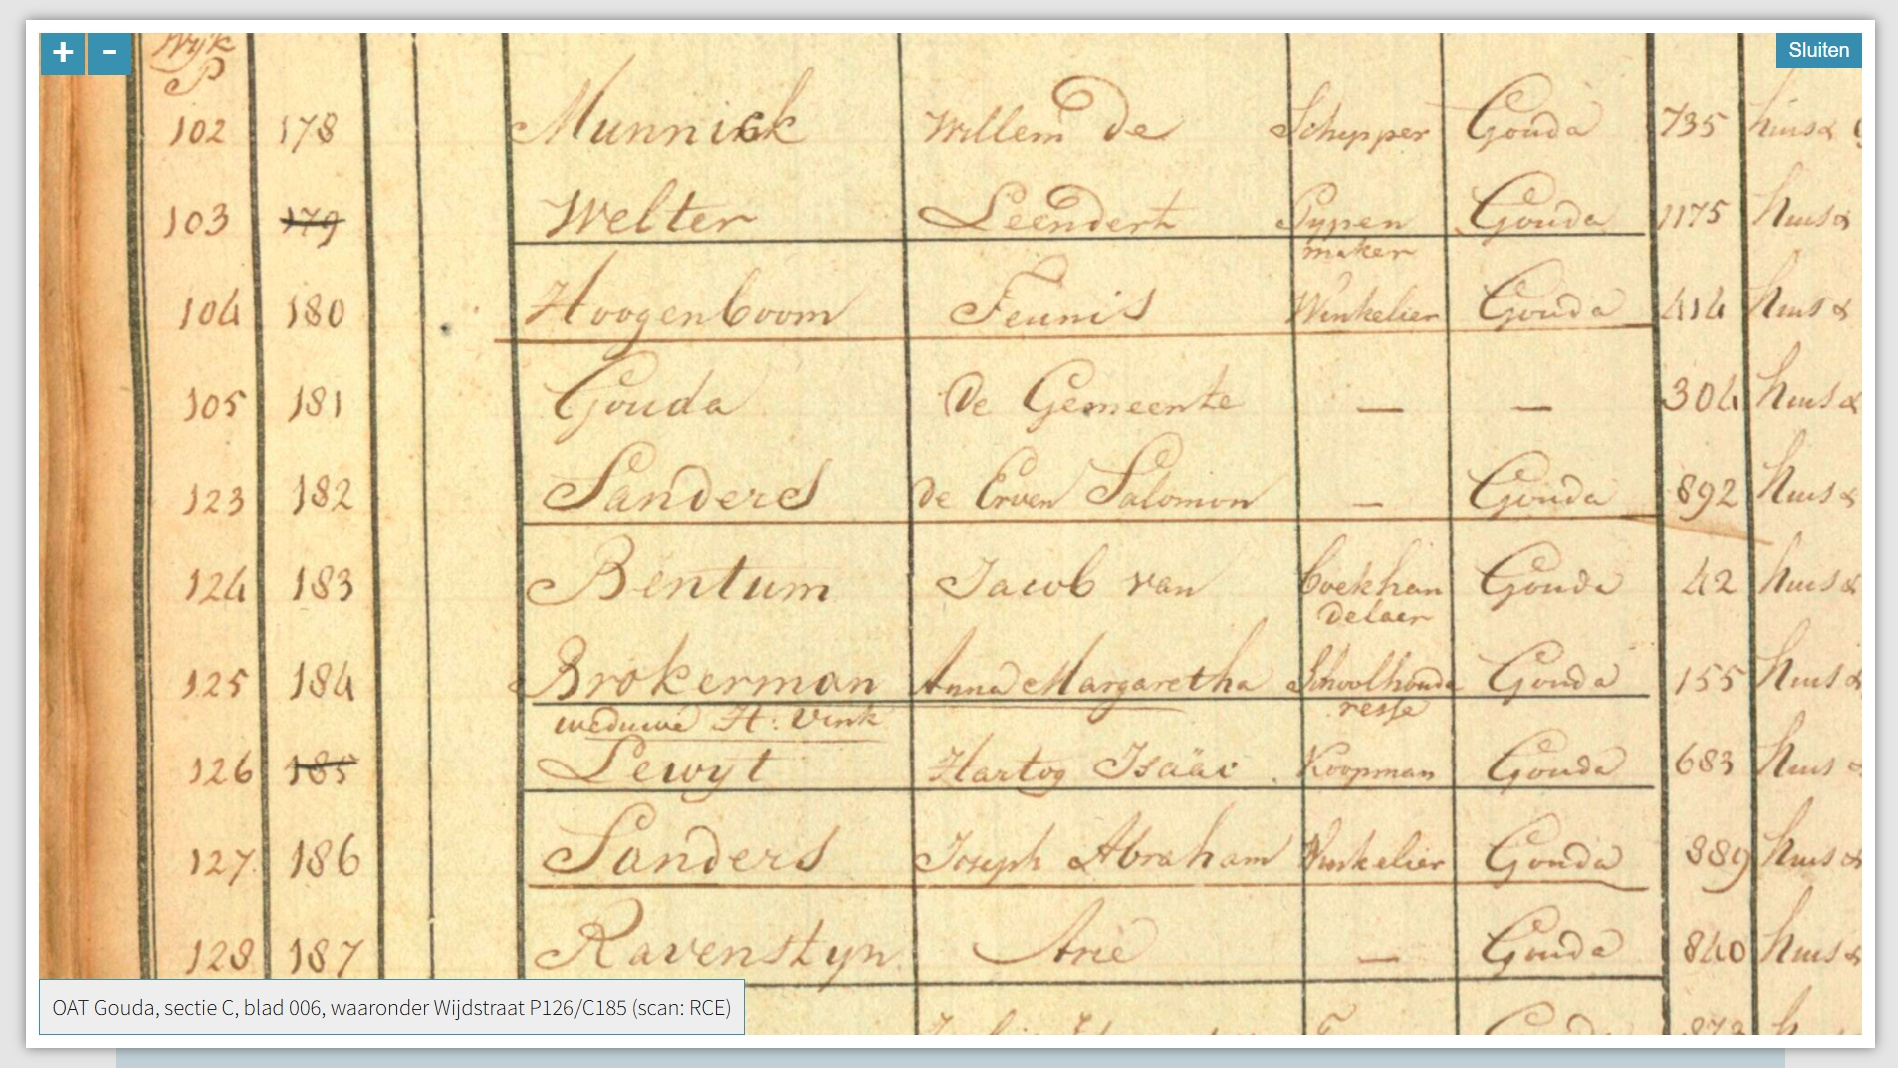 + - Sluiten
Wijk
P
102 178 Munnick Willem de Schipper Gouda 735 huis &
103 179 Welter Leendert Pypen Gouda 1175 huis &
maker
104 180 Hoogenboom Teunis Winkelier Gouda 414 huis &
105 181 Gouda De Gemeente — — 304 huis &
123 182 Sanders de Erven Salomon — Gouda 892 huis &
124 183 Bentum Jacob van Boekhan Gouda 42 huis &
delaer
125 184 Brokerman Anna Margaretha Schoolhoude Gouda 155 huis &
weduwe H: Vink resse
126 185 Lewyt Hartog Isääc Koopman Gouda 683 huis &
127 186 Sanders Joseph Abraham Winkelier Gouda 889 huis &
128 187 Ravenstyn Arie — Gouda 840 huis &
OAT Gouda, sectie C, blad 006, waaronder Wijdstraat P126/C185 (scan: RCE)